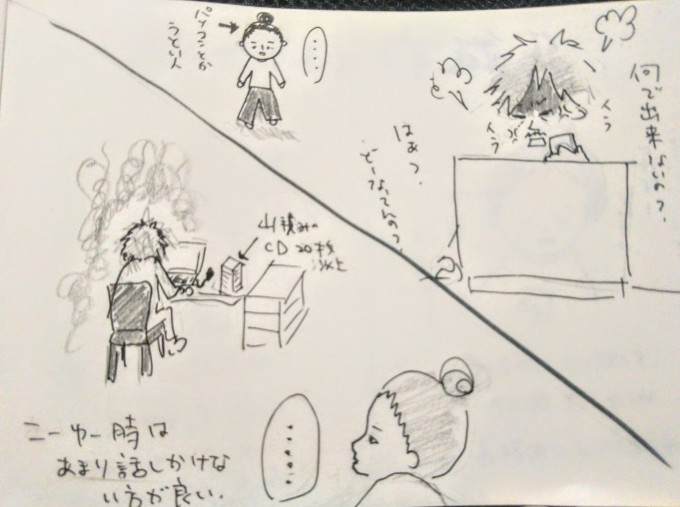 何で出来ないの?
イラ
イラ
はぁ?
どーなってんの?
パソコンとか
うとい人
‥‥
山積みの
CD20枚
以上
……
こーゆー時は
あまり話しかけな
い方が良い.